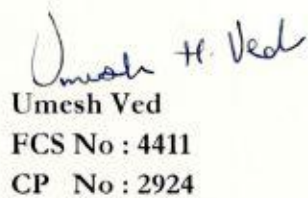 Umesh H. Ved
Umesh Ved
FCS No : 4411
CP No : 2924